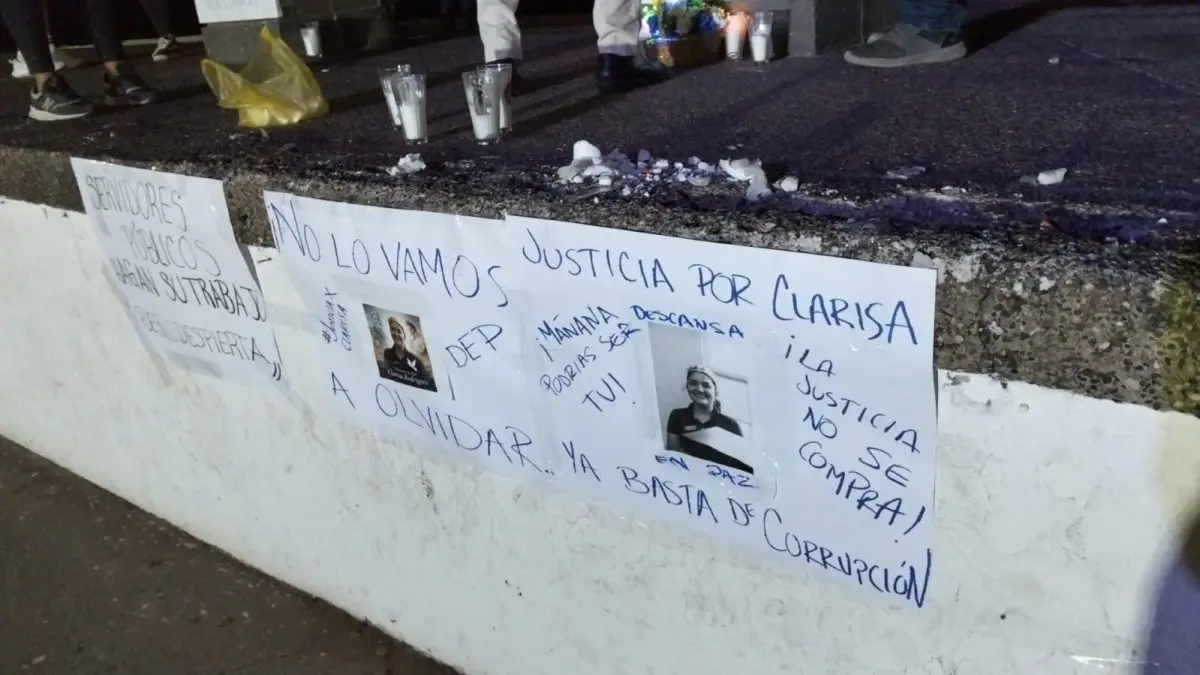 SERVIDORES
PÚBLICOS
HAGAN SU TRABAJO
DESPIERTA,,
¡NO LO VAMOS
DEP
A OLVIDAR.
JUSTICIA POR CLARISA
¡MAÑANA
PODRIAS SER
TU!
DESCANSA
EN PAZ
¡LA
JUSTICIA
NO SE
COMPRA!
YA BASTA DE CORRUPCIÓN